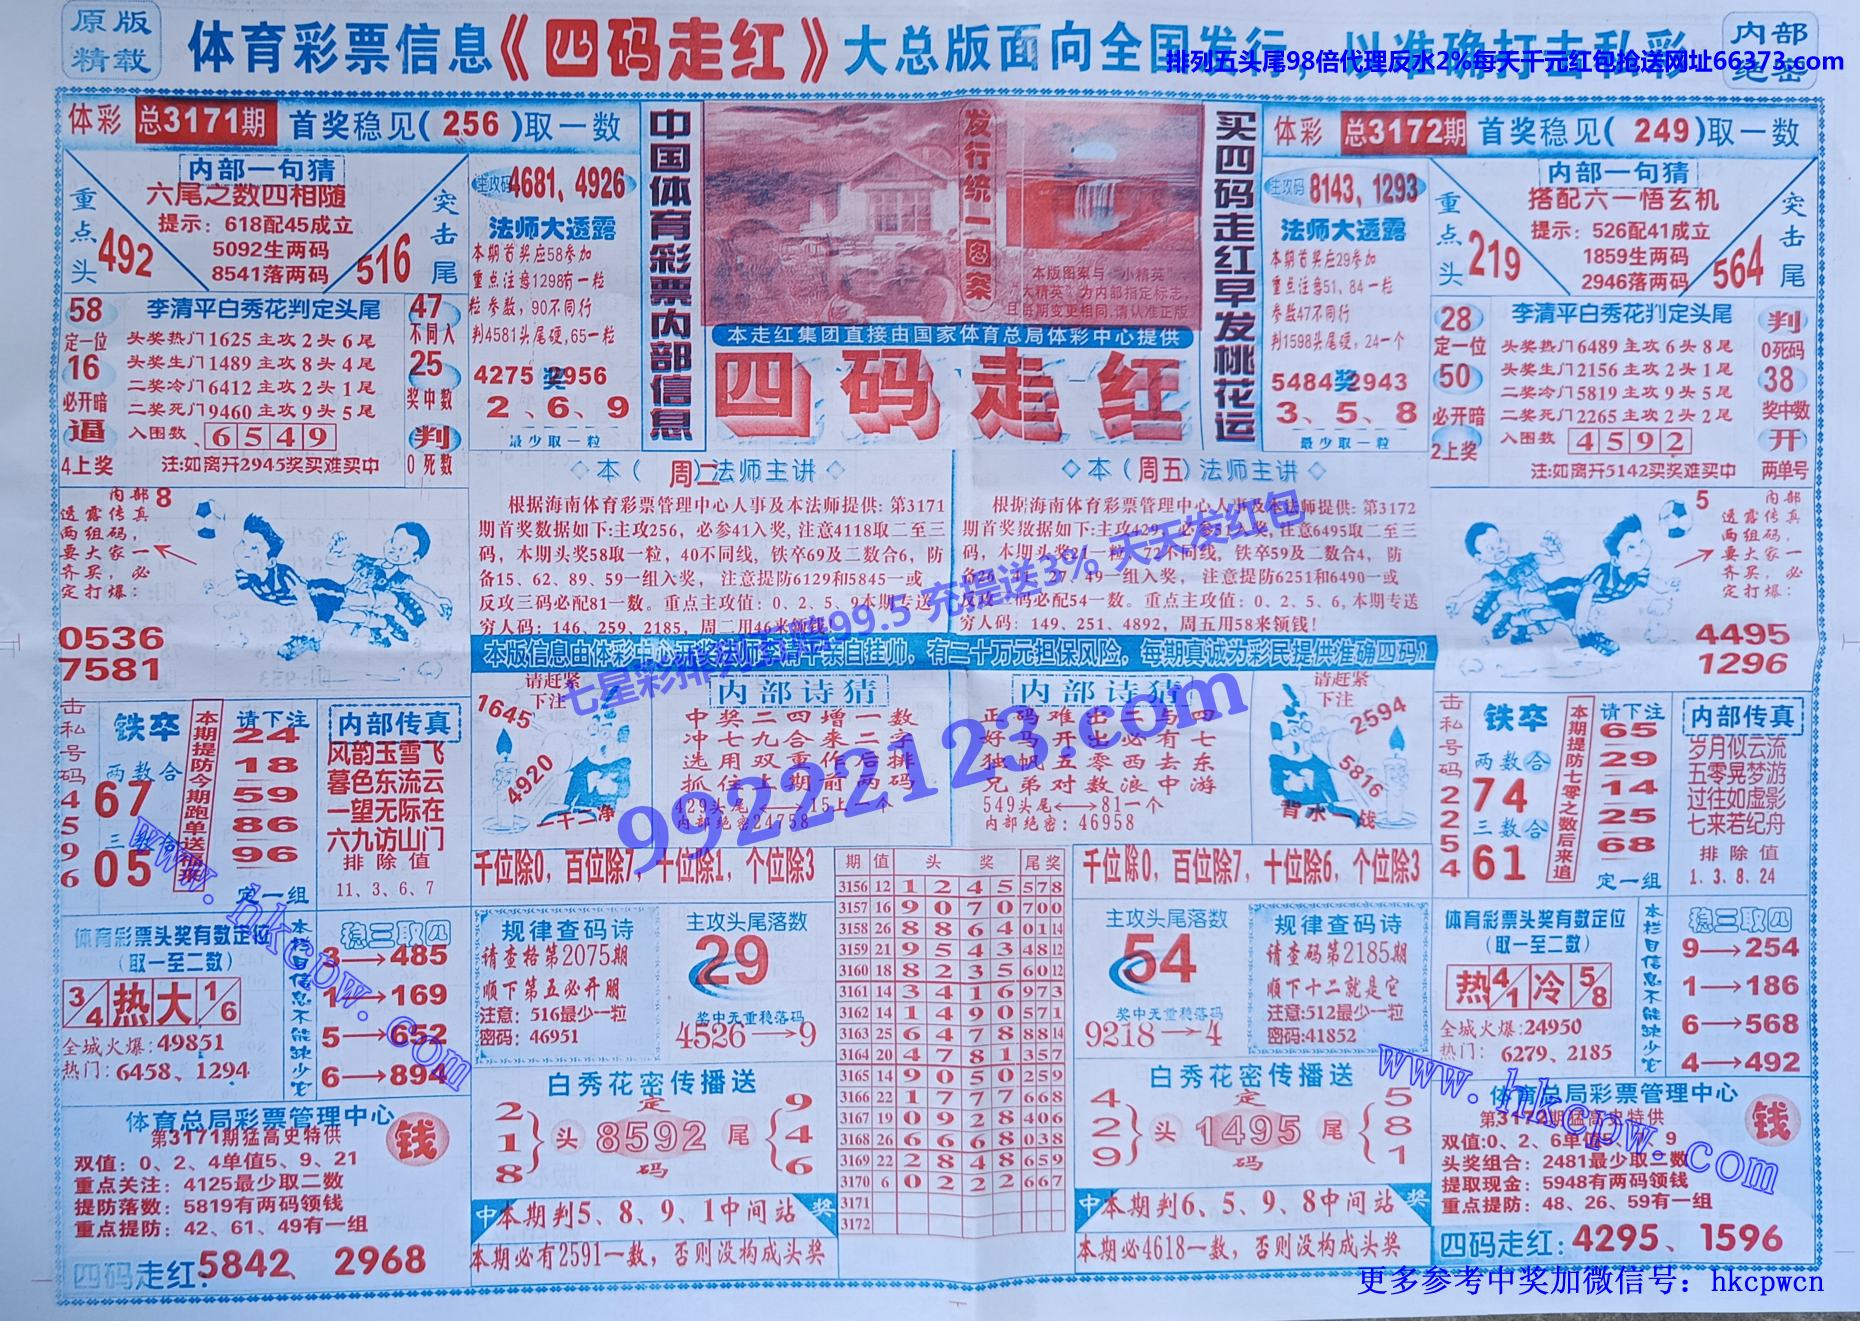 原版
精载
体育彩票信息《四码走红》大总版面向全国发行，以准确打击私彩
内部
绝密
排列五头尾98倍代理反水2%每天千元红包抢送网址66373.com
体彩 总3171期 首奖稳见(256)取一数
内部一句猜
六尾之数四相随
提示：618配45成立
5092生两码
8541落两码
重点头 492
突击尾 516
主攻码 4681, 4926
法师大透露
本期首奖应58参加
重点注意1298有一粒
粒参数, 90不同行
判4581头尾硬,65一粒
4275奖2956
2、6、9
最少取一粒
58
定一位
16
必开暗
逼
4上奖
李清平白秀花判定头尾
头奖热门1625主攻2头6尾
头奖生门1489主攻8头4尾
二奖冷门6412主攻2头1尾
二奖死门9460主攻9头5尾
入围数、6549
注:如离开2945奖买难买中
47
不同入
25
奖中数
判
0死数
中国体育彩票内部信息
发行统一图案
本版图案与“小精英”
“大精英”为内部指定标志，
且每期变更相同,请认准正版
本走红集团直接由国家体育总局体彩中心提供
四码走红
买四码走红早发桃花运
体彩 总3172期 首奖稳见(249)取一数
主攻码 8143, 1293
法师大透露
本期首奖应29参加
重点注意51, 84一粒
参数47不同行
判1598头尾硬, 24一个
5484奖2943
3、5、8
最少取一粒
内部一句猜
搭配六一悟玄机
提示：526配41成立
1859生两码
2946落两码
重点头 219
突击尾 564
28
定一位
50
必开暗
2上奖
李清平白秀花判定头尾
头奖热门6489主攻6头8尾
头奖生门2156主攻2头1尾
二奖冷门5819主攻9头5尾
二奖死门2265主攻2头2尾
入围数 4592
注:如离开5142买奖难买中
判
0死码
38
奖中数
开
两单号
内部 8
透露传真
两组码，
要大家一
齐买，必
定打爆：
0536
7581
◇本(周二)法师主讲◇
根据海南体育彩票管理中心人事及本法师提供: 第3171
期首奖数据如下:主攻256, 必参41入奖, 注意4118取二至三
码, 本期头奖58取一粒, 40不同线, 铁卒69及二数合6, 防
备15、62、89、59一组入奖, 注意提防6129和5845一或
反攻三码必配81一数。重点主攻值: 0、2、5、9本期专送
穷人码: 146、259、2185, 周二用46来领钱!
◇本(周五)法师主讲◇
根据海南体育彩票管理中心人事及本法师提供: 第3172
期首奖数据如下:主攻429, 必参51入奖, 注意6495取二至三
码, 本期头奖21一粒, 72不同线, 铁卒59及二数合4, 防
备26、41、27、49一组入奖, 注意提防6251和6490一或
反攻三码必配54一数。重点主攻值: 0、2、5、6, 本期专送
穷人码: 149、251、4892, 周五用58来领钱!
5 内部
透露传真
两组码，
要大家一
齐买，必
定打爆：
4495
1296
本版信息由体彩中心开奖法师李清平亲自挂帅，有二十万元担保风险，每期真诚为彩民提供准确四码！
99.5 充提送3% 天天发红包
99222123.com
击私号码 4 5 9 6
铁卒
两数合
67
三数合
05
本期提防今期跑单送福来
请下注
24
18
59
86
96
定一组
内部传真
风韵玉雪飞
暮色东流云
一望无际在
六九访山门
排除值
11、3、6、7
1645
请赶紧
下注
4920
一干二净
内部诗猜
中奖二四增一数
冲七九合来二字
选用双重作后排
抓住上期前两码
429头尾⟷15上一个
内部绝密24758
内部诗猜
正码难出三与四
好马开出必有七
独帆五零西去东
兄弟对数浪中游
549头尾⟷81一个
内部绝密: 46958
请赶紧
下注
2594
5816
背水一战
击私号码 2 2 5 4
铁卒
两数合
74
三数合
61
本期提防七零之数后来追
请下注
65
29
14
25
68
定一组
内部传真
岁月似云流
五零晃梦游
过往如虚影
七来若纪舟
排除值
1. 3. 8. 24
千位除0, 百位除7, 十位除1, 个位除3
千位除0, 百位除7, 十位除6, 个位除3
体育彩票头奖有数定位
(取一至二数)
3/4 热大 1/6
全城火爆:49851
热门：6458、1294
本栏目信息不能缺少它
稳三取四
3→485
1→169
5→652
6→894
规律查码诗
请查格第2075期
顺下第五必开朋
注意: 516最少一粒
密码: 46951
主攻头尾落数
29
奖中无重稳落码
4526→9
期 值 头奖 尾奖
3156 12 1 2 4 5 5 7 8
3157 16 9 0 7 0 7 0 0
3158 26 8 8 6 4 0 1 14
3159 21 9 5 4 3 4 8 12
3160 18 8 2 3 5 6 0 12
3161 14 3 4 1 6 9 7 3
3162 14 1 4 9 0 5 7 1
3163 25 6 4 7 8 8 8 14
3164 20 4 7 8 1 3 5 7
3165 14 9 0 5 0 2 5 9
3166 22 1 7 7 7 6 6 8
3167 19 0 9 2 8 4 0 6
3168 26 6 6 6 8 0 3 8
3169 22 2 8 4 8 6 5 9
3170 6 0 2 2 2 6 6 7
3171
3172
主攻头尾落数
54
奖中无重稳落码
9218→4
规律查码诗
请查码第2185期
顺下十二就是它
注意:512最少一粒
密码:41852
体育彩票头奖有数定位
(取一至二数)
热 4/1 冷 5/8
全城火爆:24950
热门: 6279、2185
本栏目信息不能缺少它
稳三取四
9→254
1→186
6→568
4→492
体育总局彩票管理中心
第3171期猛高史特供
钱
双值: 0、2、4单值5、9、21
重点关注: 4125最少取二数
提防落数: 5819有两码领钱
重点提防: 42、61、49有一组
四码走红:5842、2968
白秀花密传播送
2 1 8 }头 定 8592 码 尾{ 9 4 6
中 本期判5、8、9、1中间站 奖
本期必有2591一数, 否则没构成头奖
白秀花密传播送
4 2 9 }头 定 1495 码 尾{ 5 8 1
中 本期判6、5、9、8中间站 奖
本期必4618一数, 否则没构成头奖
体育总局彩票管理中心
第3172期猛高史特供
钱
双值:0、2、6单值5、9
头奖组合: 2481最少取二数
提取现金: 5948有两码领钱
重点提防: 48、26、59有一组
四码走红: 4295、1596
www.hkcpw.com
www.hkcpw.com
更多参考中奖加微信号：hkcpwcn